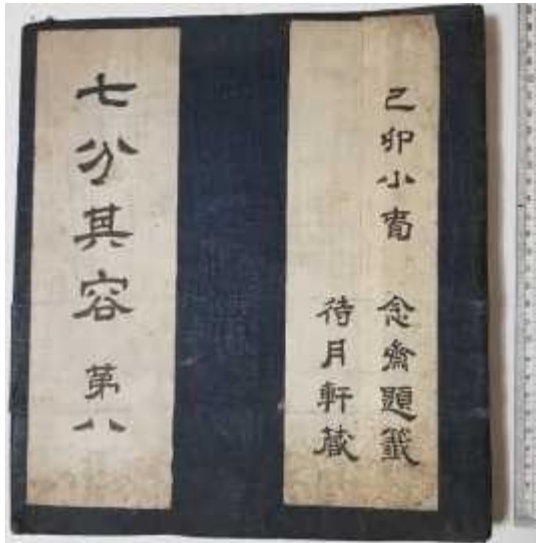 己卯小旾 念齋題籤
待月軒藏
七分其容 第八